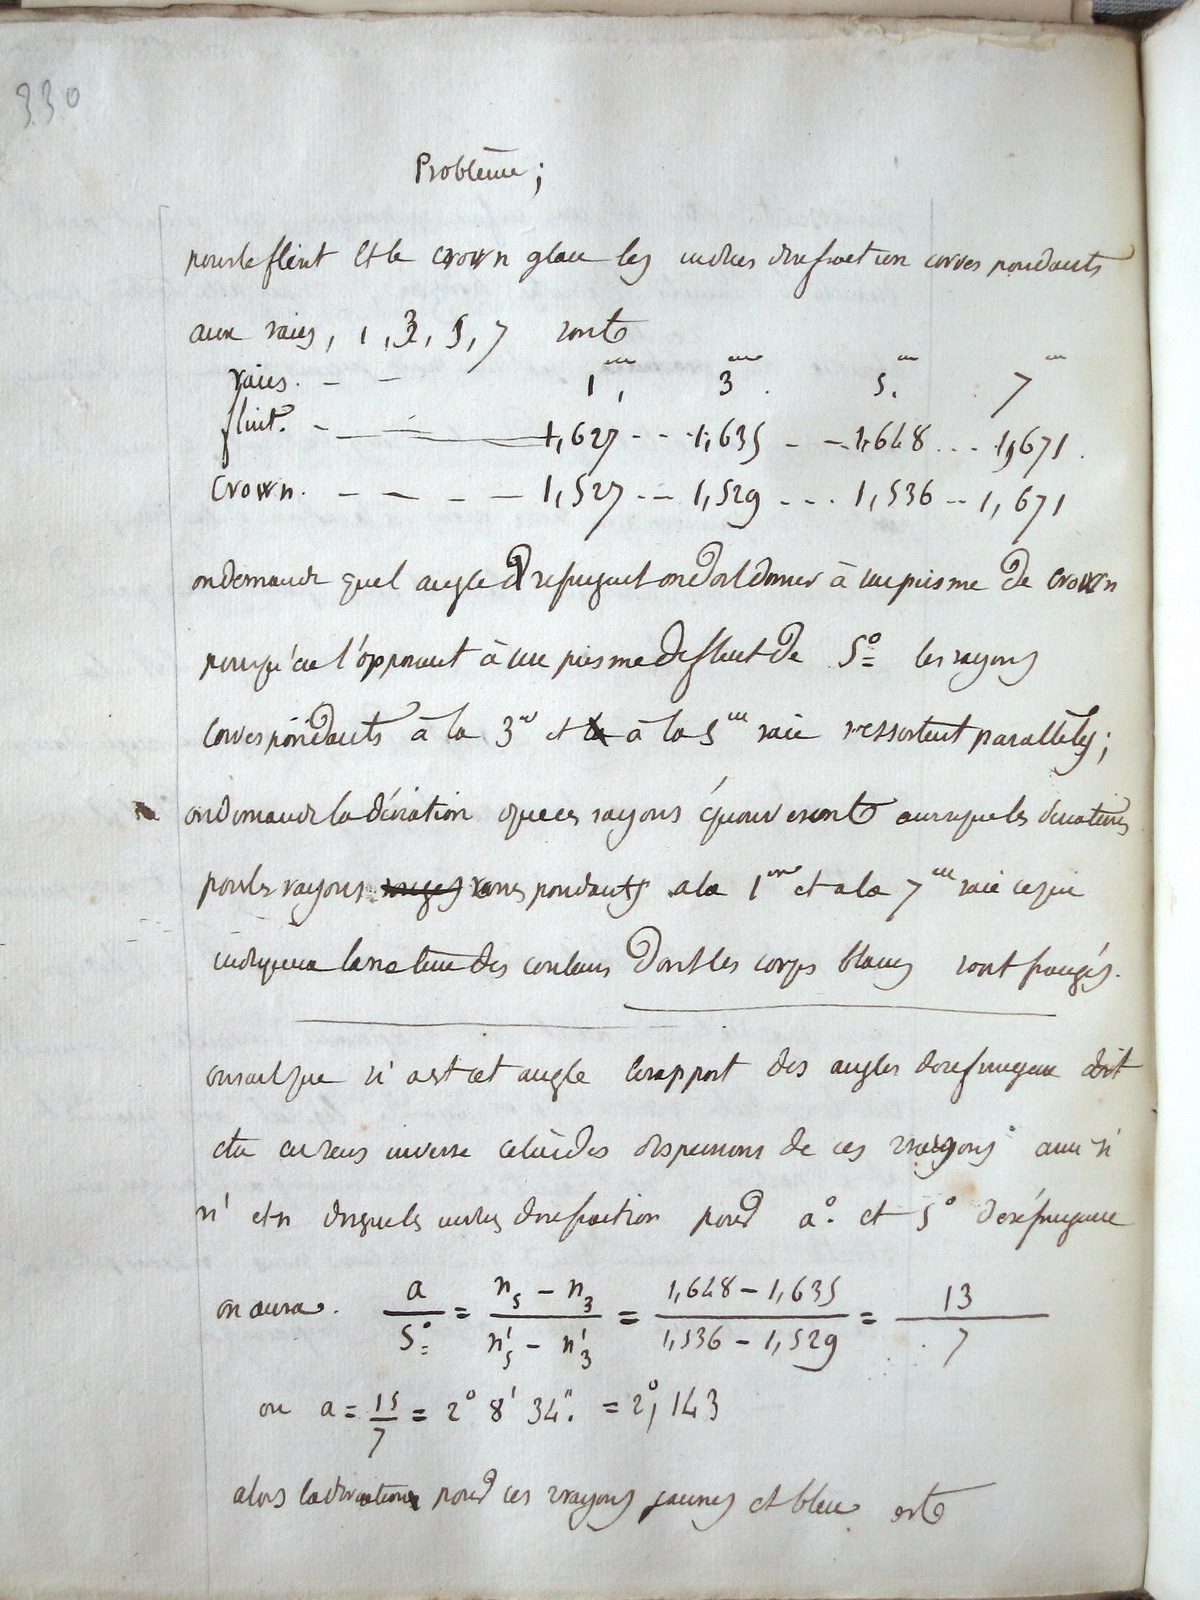 330
Problême ;
pour le flint et le crown glace les indices de refraction correspondants
aux raies, 1, 3, 5, 7 sont
raies. - - 1ere, 3eme. 5.eme 7eme
flint. - 1,627 - - 1,635 - - 1,648 ... 1,671.
Crown. - - - - 1,527 -- 1,529 ... 1,536 -- 1,671
on demande quel angle refringent on doit donner à un prisme de crown
pour qu'en l'opposant à un prisme de flint de 5° les rayons
correspondants à la 3me et à la 5me raie ressortent parallèles ;
on demande la déviation que ces rayons éprouveront ainsi que les déviations
pour les rayons rouges correspondants a la 1ere et a la 7eme raie ce qui
indiquera la nature des couleurs dont les corps blancs sont frangés.
on sait que si a est cet angle le rapport des angles de refringence doit
etre en sens inverse celui des dispersions de ces rayons ainsi si
n' et n designe les indices de refraction pour a°. et 5° de réfringence
on aura. a/5° = (n5 - n3)/(n'5 - n'3) = (1,648 - 1,635)/(1,536 - 1,529) = 13/7
ou a = 15/7 = 2° 8' 34". = 2°,143
alors la déviation pour ces rayons jaunes et bleu est